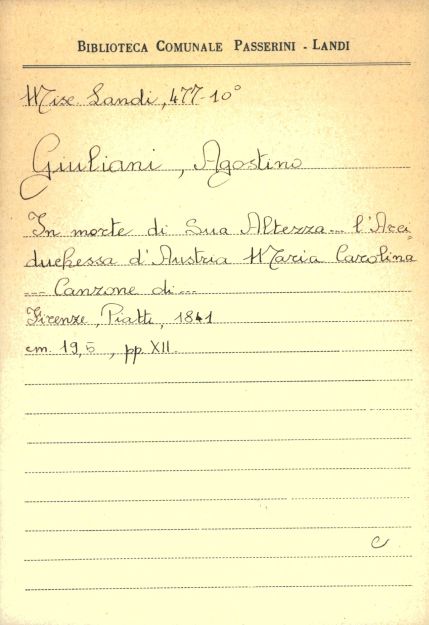 BIBLIOTECA COMUNALE PASSERINI - LANDI
Misc. Landi, 477-10°
Giuliani, Agostino
In morte di Sua Altezza... l'Arci=
duchessa d'Austria Maria Carolina
... Canzone di...
Firenze, Piatti, 1841
cm. 19,5, pp. XII.
C